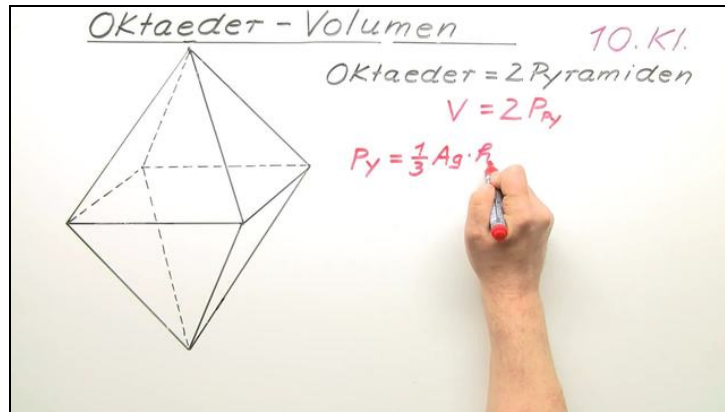 Oktaeder - Volumen
10. Kl.
Oktaeder = 2 Pyramiden
V = 2 P_Py
Py = 1/3 Ag · h